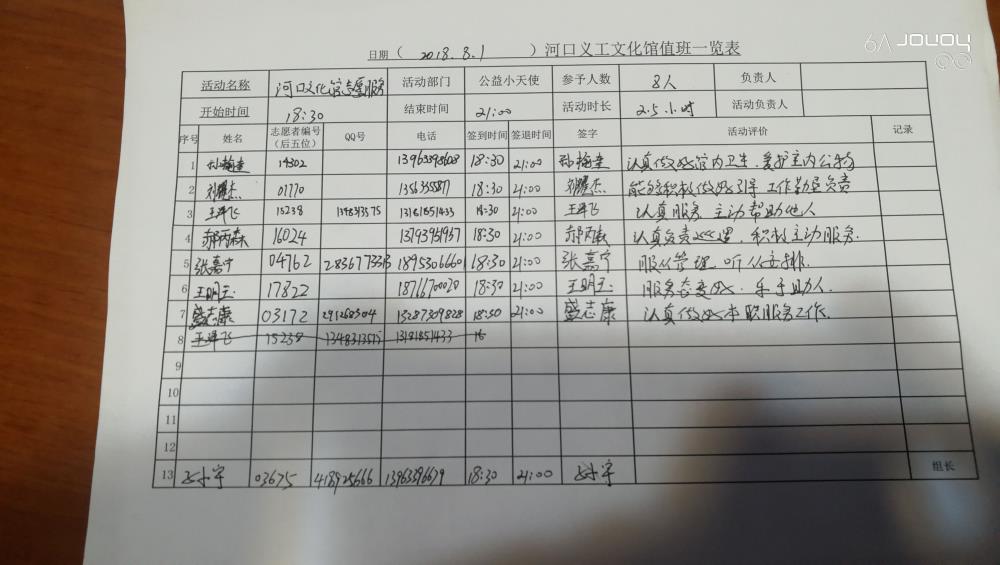 日期（ 2018.8.1 ）河口义工文化馆值班一览表
活动名称 河口文化馆志愿服务 活动部门 公益小天使 参予人数 8人 负责人
开始时间 18:30 结束时间 21:00 活动时长 2.5小时 活动负责人
序号 姓名 志愿者编号（后五位） QQ号 电话 签到时间 签退时间 签字 活动评价 记录
1 孙梅奎 14302 18:30 21:00 孙梅奎 认真做好馆内卫生、爱护室内公物
2 刘耀杰 01770 18:30 21:00 刘耀杰 能够积极做好引导 工作勤恳负责
3 王泽飞 15238 1348313575 13181851433 18:30 21:00 王泽飞 认真服务 主动帮助他人
4 郝丙森 16024 13793951957 18:30 21:00 郝丙森 认真负责 积极主动服务.
5 张嘉宁 04762 18953066601 18:30 21:00 张嘉宁 服从管理 听从安排.
6 王明玉 17822 18766700020 18:30 21:00 王明玉 服务态度好. 乐于助人.
7 盛志康 03172 291268304 13287309828 18:30 21:00 盛志康 认真做好本职服务工作.
8 王泽飞 15238 1348313575 13181851433 18
9
10
11
12
13 03675 418925666 13963396679 18:30 21:00 组长